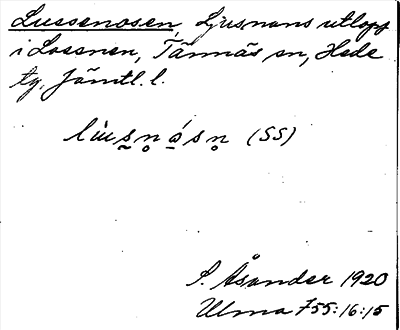 Lussenosen, Ljusnans utlopp
i Lossnen, Tännäs sn, Hede
tg. Jämtl. l.
lüs̰n̥ásn̥ (SS)
S. Åsander 1920
Ulma 755:16:15